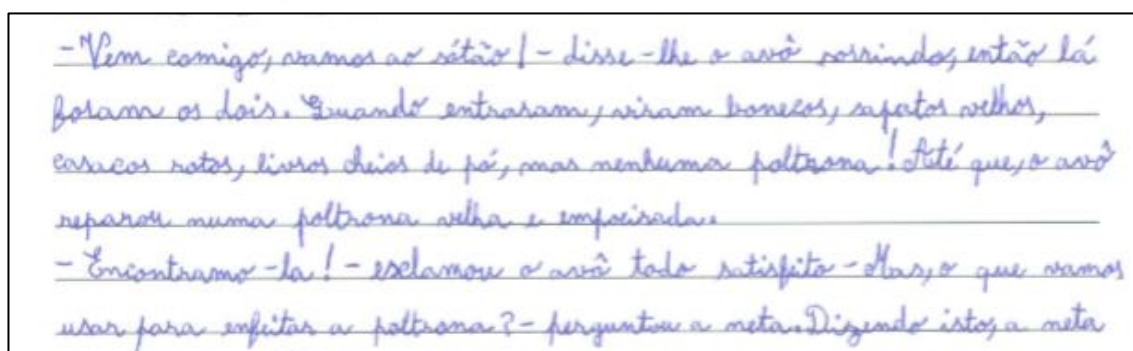 -Vem comigo, vamos ao sótão! - disse-lhe o avô sorrindo, então lá
foram os dois. Quando entraram, viram bonecos, sapatos velhos,
casacos rotos, livros cheios de pó, mas nenhuma poltrona! Até que, o avô
reparou numa poltrona velha e empoeirada.
- Encontramo-la! - esclamou o avô todo satisfeito - Mas, o que vamos
usar para enfeitar a poltrona? - perguntou a neta. Dizendo isto, a neta